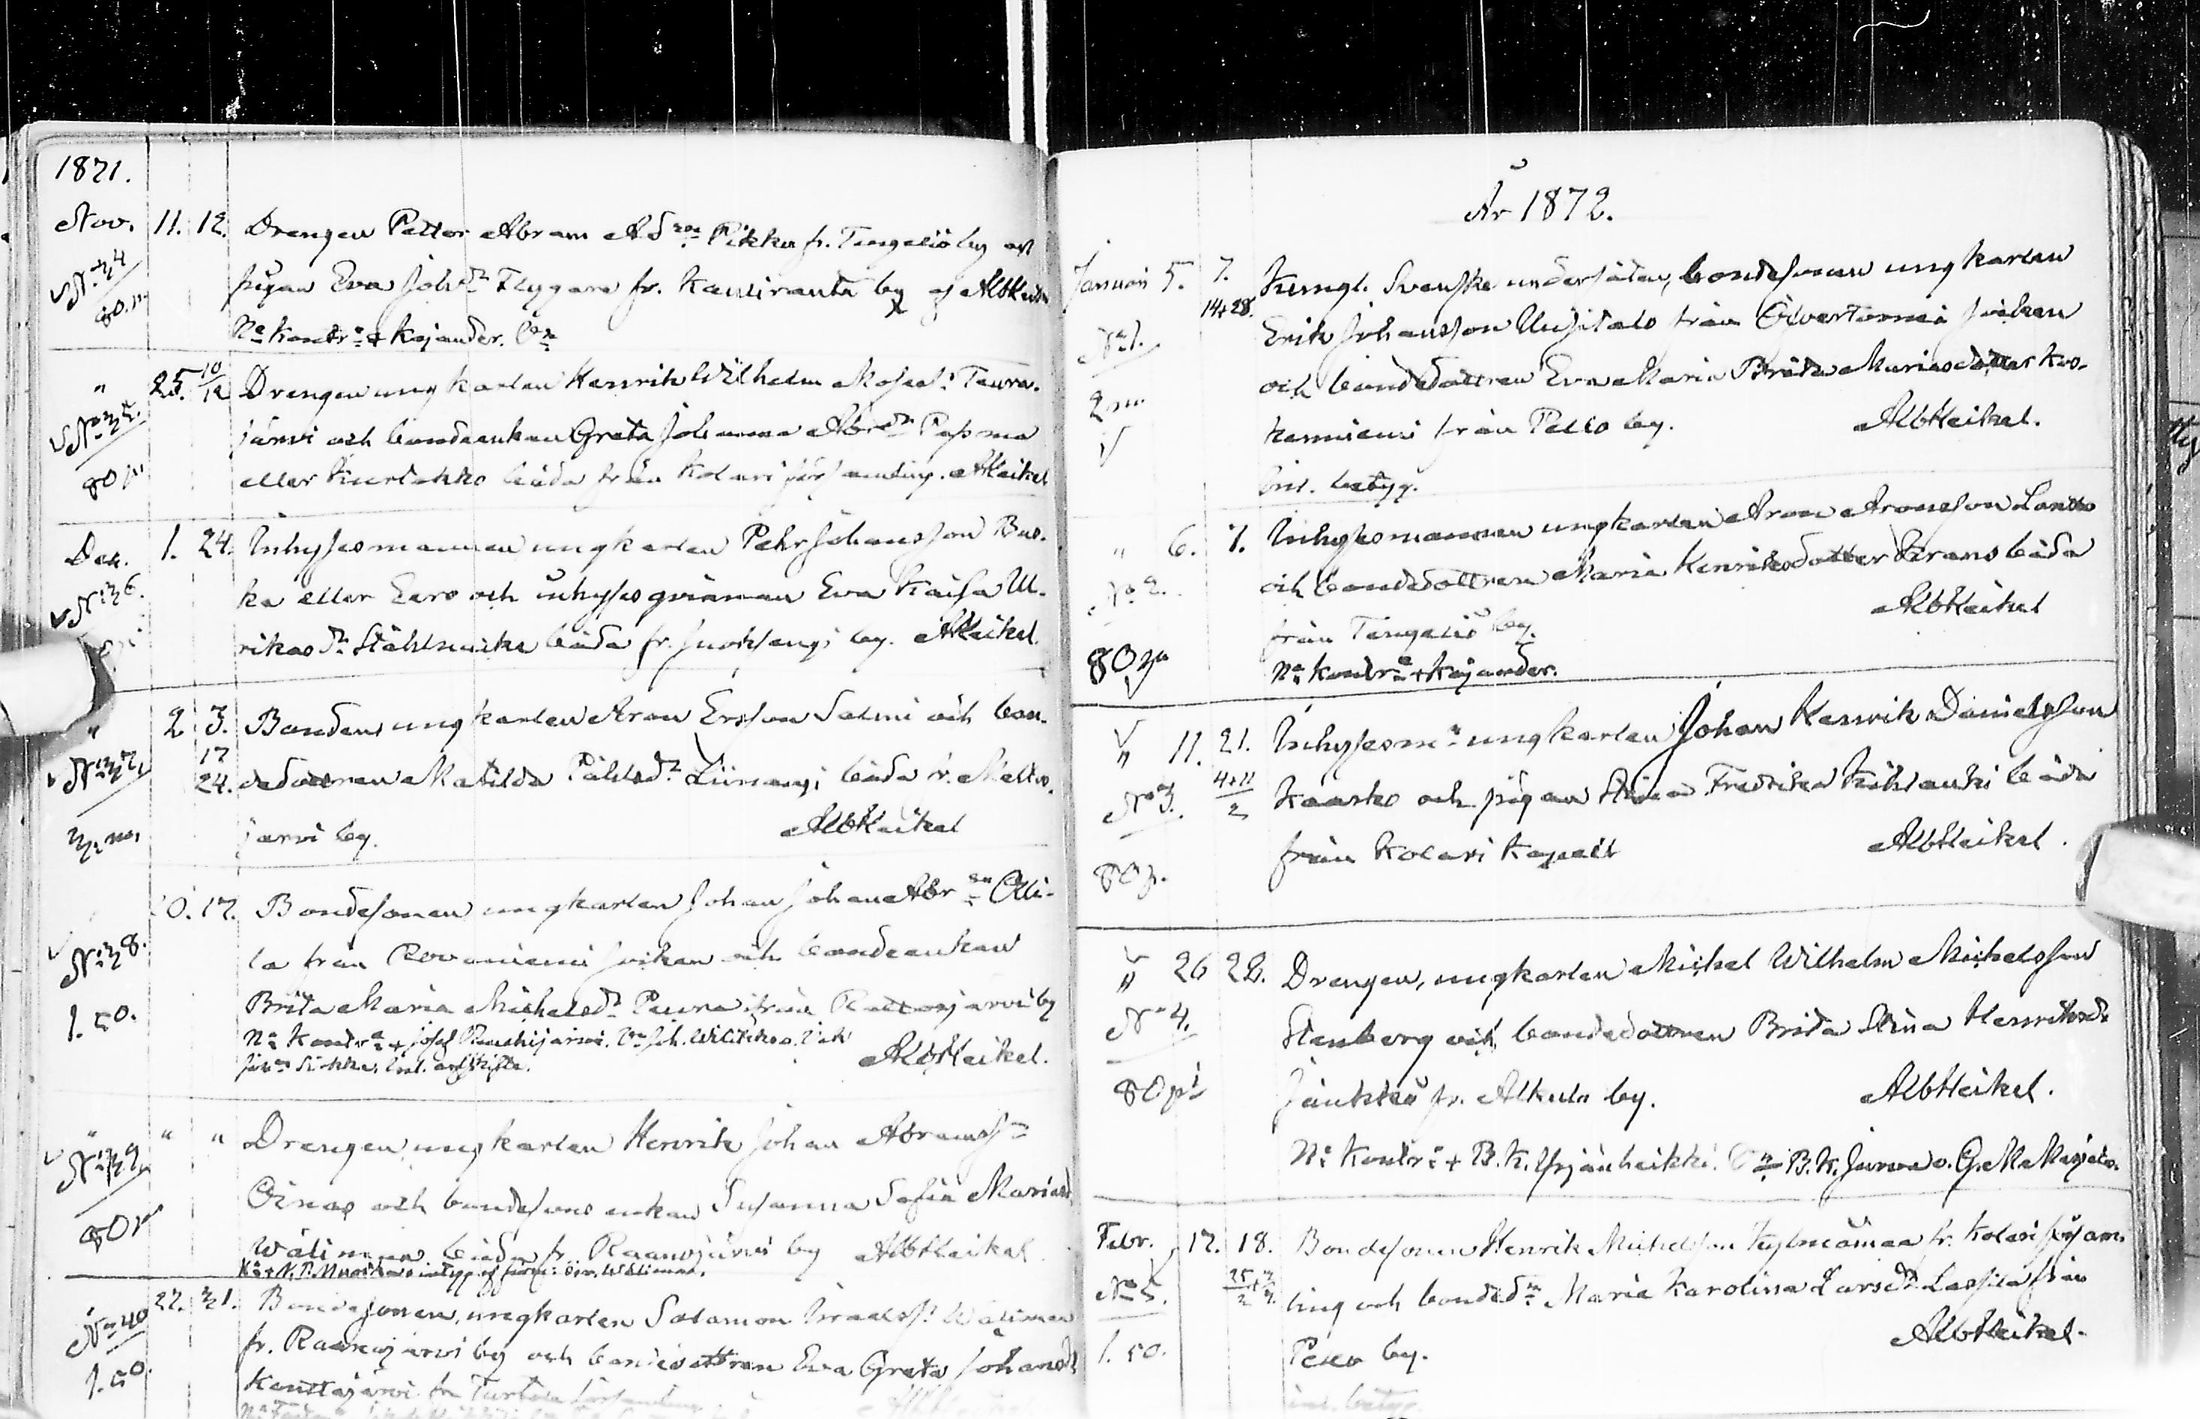 1871.
Nov. 11. 12. Drengen Petter Abram Ad Pikku fr. Tengeliö by och
N:34 pigan Eva Joh:dr Flygare fr. Kauliranta by AlbHeikel
80 p N:a Kontr:a + Kojander.
" 25. 10/12 Drengen ungkarlen Henrik Wilhelm Teura-
N:o 35. järvi och bondeenkan Greta Johanna Abr:dr Passma
80 p eller Kurtakko båda från Kolari församling. AHeikel
Dec. 1. 24. Inhysesmannen ungkarlen Pehr Johansson Bus-
N:36. ka eller Eero och inhysesqvinnan Eva Kaisa Ul-
rikasd:r Ståhlnacke båda fr. Juoksengi by. AHeikel.
" 2 3. Bonden ungkarlen Aron Ersson Salmi och bon-
N:37 17 24. dedottren Matilda Påhlsd:r Liinangi båda fr. Meltos-
järvi by. AlbHeikel
10. 17. Bondesonen ungkarlen Johan Johan Abr:sn Olli-
N:38. la från Rovaniemi socken och bondeenkan
1. 50. Brita Maria Michelsd:r Peura från Rattosjärvi by
N:a Kontr:a + Josef
AlbHeikel.
N:39 " " Drengen ungkarlen Henrik Johan Abramss:n
Oinas och bondesons enkan Susanna Sofia Mariasd
80 p Wälimaa båda fr. Raanujärvi by AlbHeikel
N:o 40 22. 31. Bondesonen, ungkarlen Salomon Israelss: Wälimaa
fr. Raanujärvi by och bondedottren Eva Greta Johansd
1. 50. Konttajärvi fr. Turtola församling
År 1872.
Januari 5. 7. Kungl. Svenske undersåten, bondesonen ungkarlen
14+28. Erik Johansson Uusitalo från Öfvertorneå socken
N:1. och bondedottren Eva Maria Brita Mariasdotter Kos-
2 m kenniemi från Pello by. AlbHeikel.
Inl. betyg.
" 6. 7. Inhysesmannen ungkarlen Aron Aronsson Lantto
N:o 2. och bondedottren Maria Henriksdotter Krans båda
från Tengeliö by. AlbHeikel
80 p N:a Kontr:a + Kojander.
" 11. 21. Inhysesm:n ungkarlen Johan Henrik Danielsson
N:o 3. 4+11/2 Kaarko och pigan Stina Fredrika Kihlanki båda
från Kolari Kapell AlbHeikel.
80 p.
" 26 28. Drengen, ungkarlen Mickel Wilhelm Michelsson
N:o 4. Stenberg och bondedottren Brita Stina Henriksd:
80 p Jänkkö fr. Alkula by. AlbHeikel.
N:a Kontr:a + B. K. Yrjänheikki. B. K. Juneo. G. M.
Febr. 17. 18. Bondesonen Henrik Michelsson Kylmämaa fr. Kolari försam-
N:o 5. ling och bonded:n Maria Karolina Larsd:r Lassila från
1. 50. Pello by. AlbHeikel.
inl. betyg.